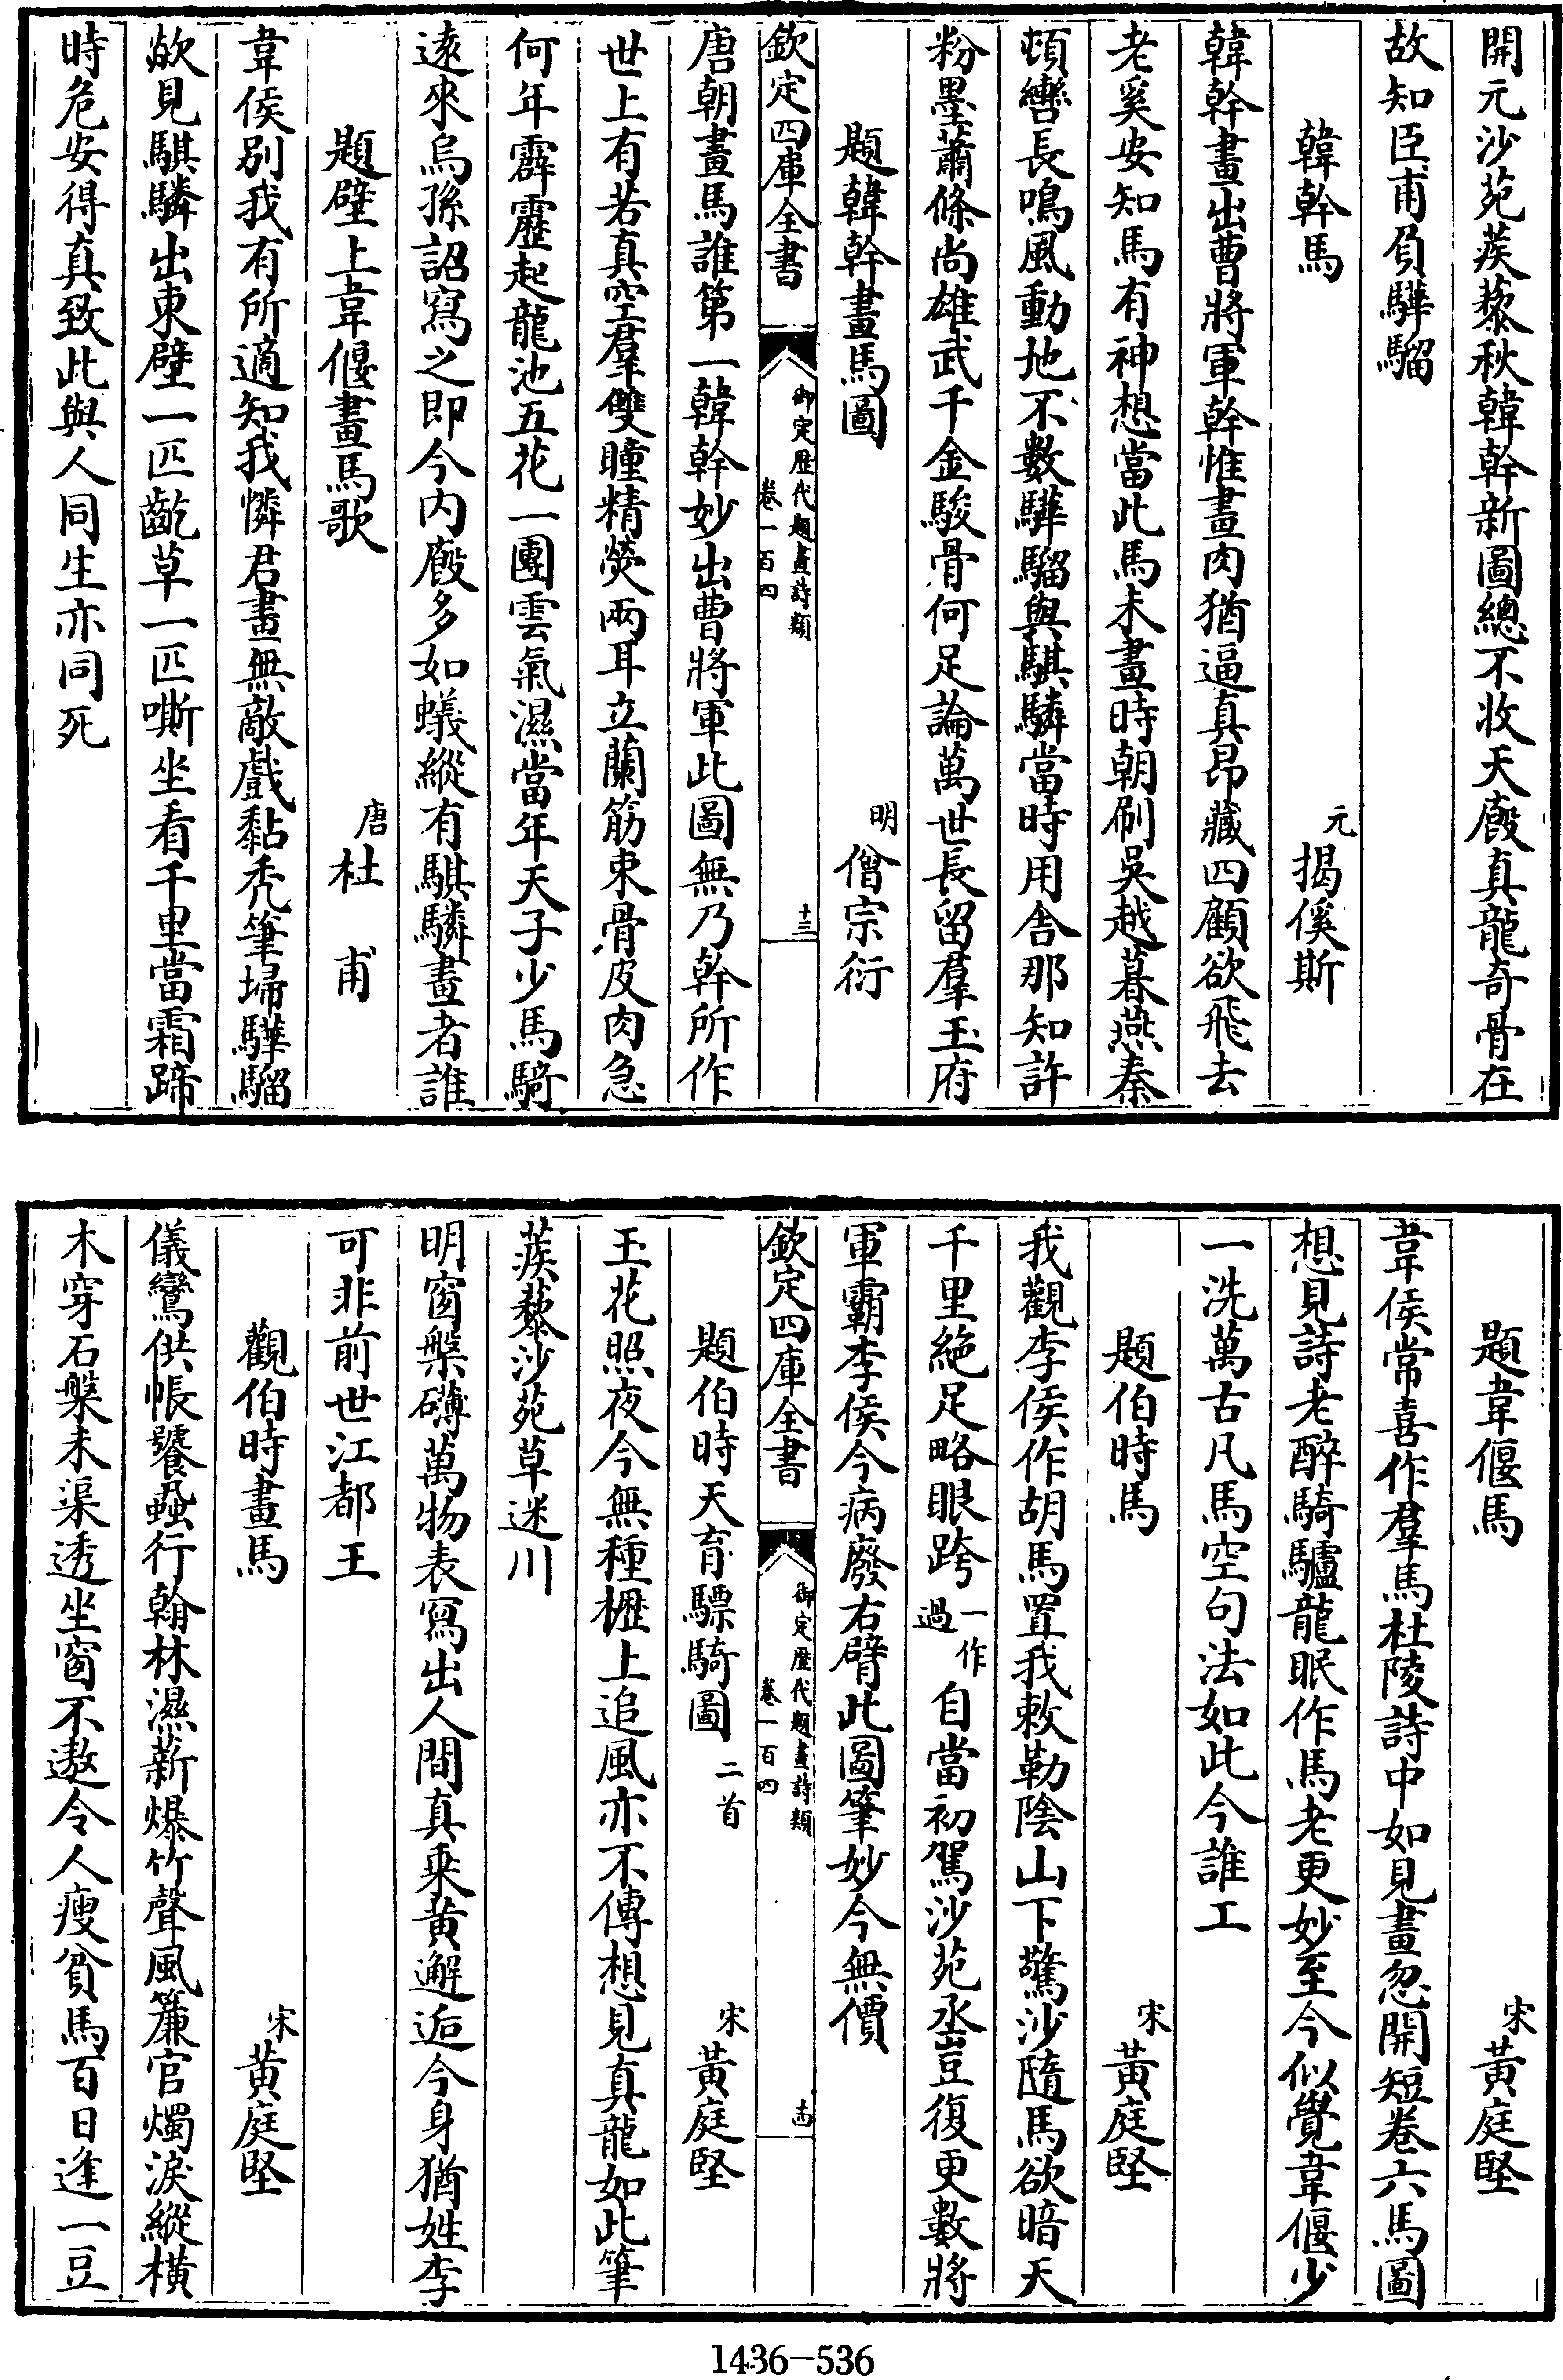 開元沙苑蒺藜秋韓幹新圖總不收天廄真龍奇骨在
故知臣甫負驊騮
韓幹馬　元揭傒斯
韓幹畫出曹將軍幹惟畫肉猶逼真昂藏四顧欲飛去
老奚安知馬有神想當此馬未畫時朝刷吳越暮燕秦
頓轡長鳴風動地不數驊騮與騏驎當時用舍那知許
粉墨蕭條尚雄武千金駿骨何足論萬世長留羣玉府
題韓幹畫馬圖　明僧宗衍
欽定四庫全書　御定歷代題畫詩類卷一百四　十三
唐朝畫馬誰第一韓幹妙出曹將軍此圖無乃幹所作
世上有若真空羣雙瞳精熒兩耳立蘭筋束骨皮肉急
何年霹靂起龍池五花一團雲氣濕當年天子少馬騎
遠來烏孫詔寫之即今内廄多如蟻縱有騏驎畫者誰
題壁上韋偃畫馬歌　唐杜甫
韋侯别我有所適知我憐君畫無敵戲黏秃筆埽驊騮
歘見騏驎出東壁一匹齕草一匹嘶坐看千里當霜蹄
時危安得真致此與人同生亦同死
題韋偃馬　宋黃庭堅
韋侯常喜作羣馬杜陵詩中如見畫忽開短卷六馬圖
想見詩老醉騎驢龍眠作馬老更妙至今似覺韋偃少
一洗萬古凡馬空句法如此今誰工
題伯時馬　宋黃庭堅
我觀李侯作胡馬置我敕勒陰山下驚沙隨馬欲暗天
千里絶足略眼跨一作過自當初駕沙苑丞豈復更數將
軍霸李侯今病廢右臂此圖筆妙今無價
欽定四庫全書　御定歷代題畫詩類卷一百四　十四
題伯時天育驃騎圖二首　宋黃庭堅
玉花照夜今無種櫪上追風亦不傳想見真龍如此筆
蒺藜沙苑草迷川
明窗槃礴萬物表寫出人間真乘黃邂逅今身猶姓李
可非前世江都王
觀伯時畫馬　宋黃庭堅
儀鸞供帳饕蝨行翰林濕薪爆竹聲風簾官燭淚縱横
木穿石槃未渠透坐窗不遨令人瘦貧馬百日逢一豆
1436-536